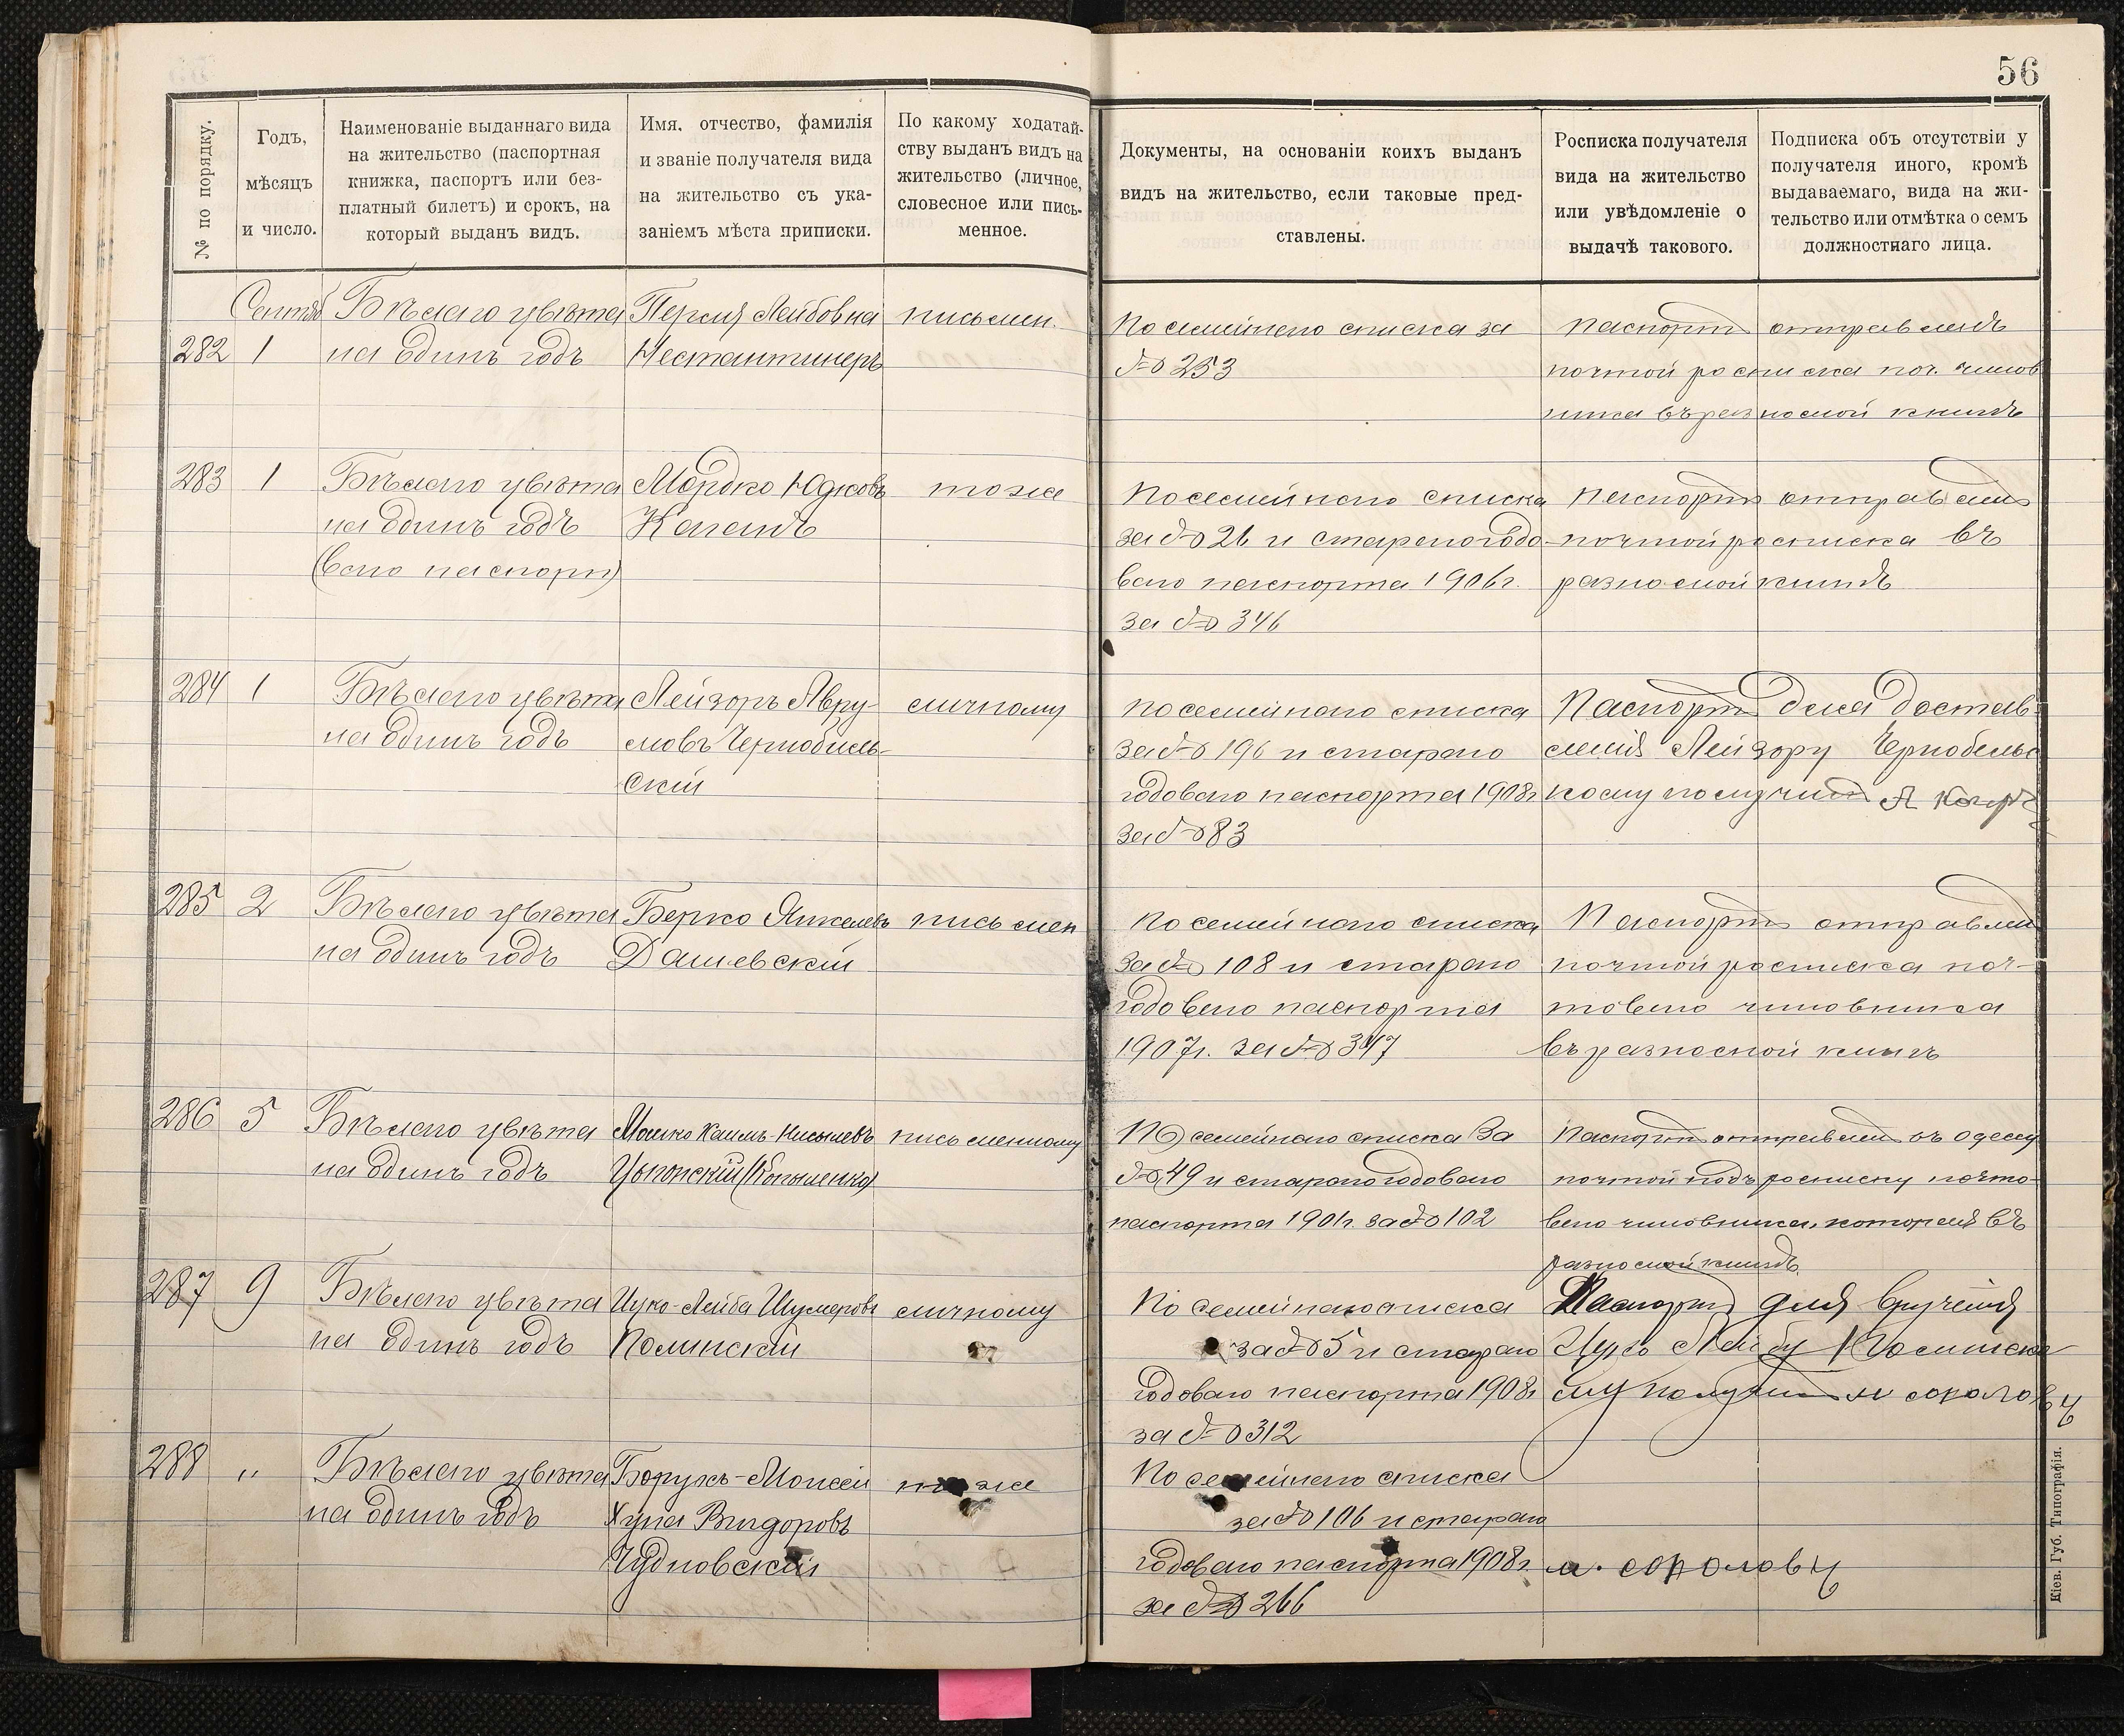 56
№ по порядку.
Годъ,
мѣсяцъ
и число.
Наименованіе выданнаго вида
на жительство (паспортная
книжка, паспортъ или без-
платный билетъ) и срокъ, на
который выданъ видъ.
Имя, отчество, фамилія
и званіе получателя вида
на жительство съ ука-
заніемъ мѣста приписки.
По какому ходатай-
ству выданъ видъ на
жительство (личное,
словесное или пись-
менное.
Документы, на основаніи коихъ выданъ
видъ на жительство, если таковые пред-
ставлены.
Росписка получателя
вида на жительство
или увѣдомленіе о
выдачѣ такового.
Подписка объ отсутствіи у
получателя иного, кромѣ
выдаваемаго, вида на жи-
тельство или отмѣтка о семъ
должностнаго лица.
Сентяб
282 1
Бѣлаго цвѣта
на одинъ годъ
Перля Лейбовна
письмен.
По семейнаго списка за
№ 253
паспортъ отправленъ
почтой росписка поч. чинов
ника въ разносной книгѣ
283 1
Бѣлаго цвѣта
на одинъ годъ
(ваго паспорт)
Мордко Юдковъ
Каганъ
тоже
По семейнаго списка
за № 26 и стараго годо-
ваго паспорта 1906 г.
за № 346
паспортъ отправленъ
почтой росписка въ
разносной книгѣ
284 1
Бѣлаго цвѣта
на одинъ годъ
Лейзоръ Авру-
мовъ Чернобиль-
скій
личному
По семейнаго списка
за № 196 и стараго
годоваго паспорта 1908 г
за № 83
Паспортъ для достав-
ленія Лейзору Чернобельс
кому получилъ А
285 2
Бѣлаго цвѣта
на одинъ годъ
Берко Янкелевъ
Дашевскій
письмен
По семейнаго списка
за № 108 и стараго
годоваго паспорта
1907 г. за № 347
Паспортъ отправлен
почтой росписка поч-
товаго чиновника
въ разносной книгѣ
286 5
Бѣлаго цвѣта
на одинъ годъ
Мошко Хаимъ-Нисылевъ
письменному
По семейнаго списка за
№ 49 и стараго годоваго
паспорта 1901 г. за № 102
Паспортъ отправленъ въ Одессу
почтой подъ росписку почто-
ваго чиновника, которая въ
разносной книгѣ.
287 9
Бѣлаго цвѣта
на одинъ годъ
Ицко-Лейба Шумеровъ
Полинскій
личному
По семейнаго списка
за № 5 и стараго
годоваго паспорта 1908 г
за № 312
Паспортъ для врученія
Ицко Лейбу Полинско
му получилъ м соколовъ
288 "
Бѣлаго цвѣта
на одинъ годъ
Борухъ-Мошей
Хуна Вигдоровъ
Чудновскій
тоже
По семейнаго списка
за № 106 и стараго
годоваго паспорта 1908 г.
за № 266
м. соколовъ
Кіев. Губ. Типографія.